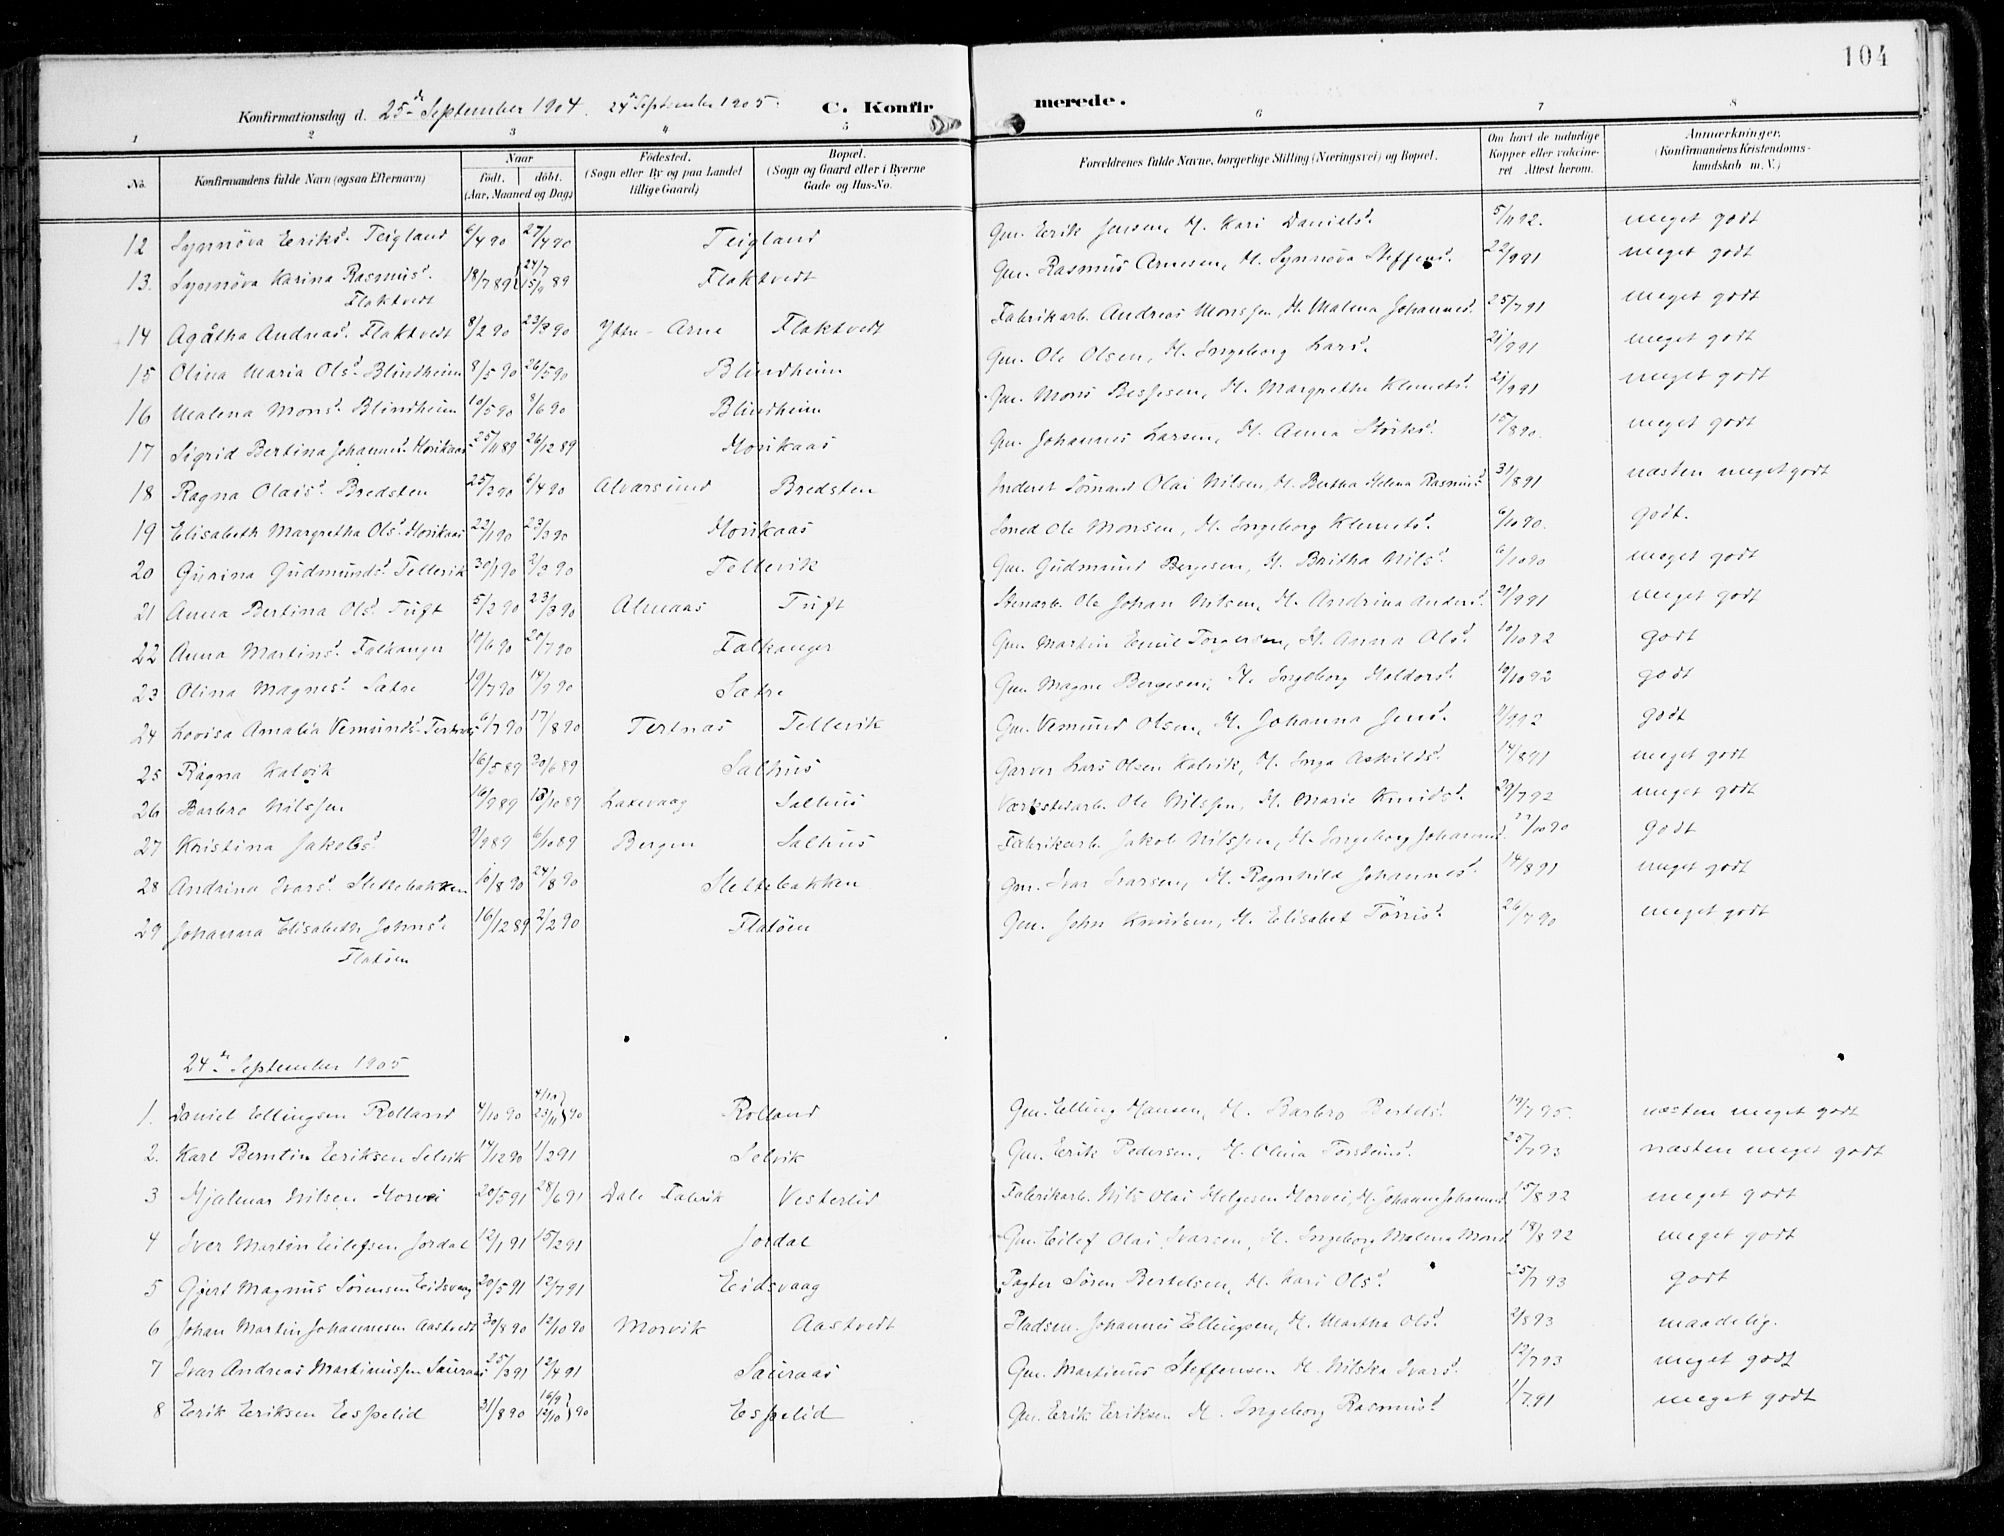 104
Konfirmationsdag d. 25de September 1904. 24de September 1905. C. Konfirmerede.
1 2 3 4 5 6 7 8
No. Konfirmandens fulde Navn (ogsaa Efternavn) Naar født. døbt. (Aar, Maaned og Dag) Fødested. (Sogn eller By og paa Landet tillige Gaard) Bopæl. (Sogn og Gaard eller i Byerne Gade og Hus-No. Forældrenes fulde Navne, borgerlige Stilling (Næringsvei) og Bopæl. Om havt de naturlige Kopper eller vakcineret Attest herom. Anmærkninger. (Konfirmandens Kristendomskundskab m. V.)
12 Synnöva Eriksd. Teigland 6/4 90 27/4 90 Teigland Gm. Erik Jensen, H. Kari Danielsd. 5/11 92. meget godt
13. Synnöva Karina Rasmusd. Flaktvedt 18/7 89 24/7 15/9 89 Flaktvedt Gm. Rasmus Arnesen, H. Synnöva Steffensd. 22/9 91 meget godt
14 Agåtha Andreasd. Flaktvedt 8/2 90 23/3 90 Ytre-Arne Flaktvedt Fabrikarb. Andreas Monssen, H. Malena Johannesd. 25/7 91 meget godt
15 Olina Maria Olsd. Blindheim 8/5 90 26/5 90 Blindheim Gm. Ole Olsen, H. Ingeborg Larsd. 21/9 91 meget godt
16 Malena Monsd. Blindheim 10/5 90 8/6 90 Blindheim Gm. Mons Bessesen, H. Margrethe Klemetsd. 21/9 91 meget godt
17 Sigrid Bertina Johannesd. Horikaas 25/11 89 26/12 89 Horikaas Gm. Johannes Larsen, H. Anna Störksd. 15/8 90. meget godt
18 Ragna Olaisd. Bredsten 25/2 90 6/4 90 Alværsund Bredsten Inderst Sömand Olai Nilsen, H. Bertha Helena Rasmusd. 31/8 91 næsten meget godt
19 Elisabeth Margretha Olsd. Horikaas 22/1 90 23/3 90 Horikaas Smed Ole Monsen, H. Ingeborg Klemetsd. 6/10 90. godt.
20 Gurina Gudmundsd. Tellevik 30/1 90 2/2 90 Tellevik Gm. Gudmund Bergesen, H. Britha Nilsd. 6/10 90 meget godt
21 Anna Bertina Olsd. Tuft 5/2 90 23/3 90 Almaas Tuft Stenarb. Ole Johan Nilsen, H. Andrina Andersd. 21/9 91 meget godt
22 Anna Martinsd. Falkanger 10/6 90 20/7 90 Falkanger Gm. Martin Emil Torgersen, H. Anna Olsd. 10/10 92 godt
23 Olina Magnesd. Sætre 19/7 90 14/9 90 Sætre Gm. Magne Bergesen, H. Ingeborg Haldorsd. 10/10 92 godt
24 Lovisa Amalia Vemundsd. Tertnes 6/7 90 17/8 90 Tertnæs Tellevik Gm. Vemund Olsen, H. Johanna Jensd. 9/9 92 godt
25 Ragna Kalvik 16/5 89 30/6 89 Salhus Garver Lars Olsen Kalvik, H. Inga Askildsd. 14/8 91 meget godt
26 Barbro Nilssen 16/9 89 13/10 89 Laxevaag Salhus Værkstedarb. Ole Nilssen, H. Marie Knudsd. 23/7 92 meget godt
27 Kristina Jakobsd. 9/9 89 6/10 89 Bergen Salhus Fabrikarb. Jakob Nilssen, H. Ingeborg Johannesd. 27/10 90 Godt
28 Andrina Ivarsd. Slettebakken 10/8 90 24/8 90 Slettebakken Gm. Ivar Ivarsen, H. Ragnhild Johannesd. 14/8 91 meget godt
29 Johanna Elisabeth Johnsd. Flatöen 16/12 89 2/2 90 Flatöen Gm. John Knudsen, H. Elisabet Törrisd. 26/7 90 meget godt
24de September 1905
1. Daniel Ellingsen Rolland 4/10 90 4/10 23/11 90 Rolland Gm. Elling Hansen, H. Barbro Bertelsd. 19/7 95. næsten meget godt
2. Karl Berntin Eriksen Selvik 14/12 90 1/2 91 Selvik Gm. Erik Pedersen, H. Olina Torsteinsd. 25/7 93 næsten meget godt
3 Hjalmar Nilsen Horvei 20/5 91 28/6 91 Dale Fabrik Vesterlid Fabrikarb. Nils Olai Helgesen Horvei, H. Johanne Johannesd. 15/8 92 meget godt
4 Iver Martin Eilefsen Jordal 12/1 91 15/2 91 Jordal Gm. Eilef Olai Ivarsen, H. Ingeborg Malena Monsd. 18/8 92 meget godt
5 Gjert Magnus Sørensen Eidsvaag 20/5 91 12/7 91 Eidsvaag Pagter Sören Bertelsen, H. Kari Olsd. 25/7 93 godt
6 Johan Martin Johannesen Aastvedt 30/8 90 12/10 90 Morvik Aastvedt Pladsm. Johannes Ellingsen, H. Martha Olsd. 2/8 93 maadelig.
7 Ivar Andreas Martinussen Sauraas 25/3 91 12/4 91 Sauraas Gm. Martinus Steffensen H. Nilska Ivarsd. 12/7 93 meget godt
8 Erik Eriksen Espelid 31/8 90 16/9 12/10 90 Espelid Gm. Erik Eriksen H. Ingeborg Rasmusd. 1/7 91 meget godt